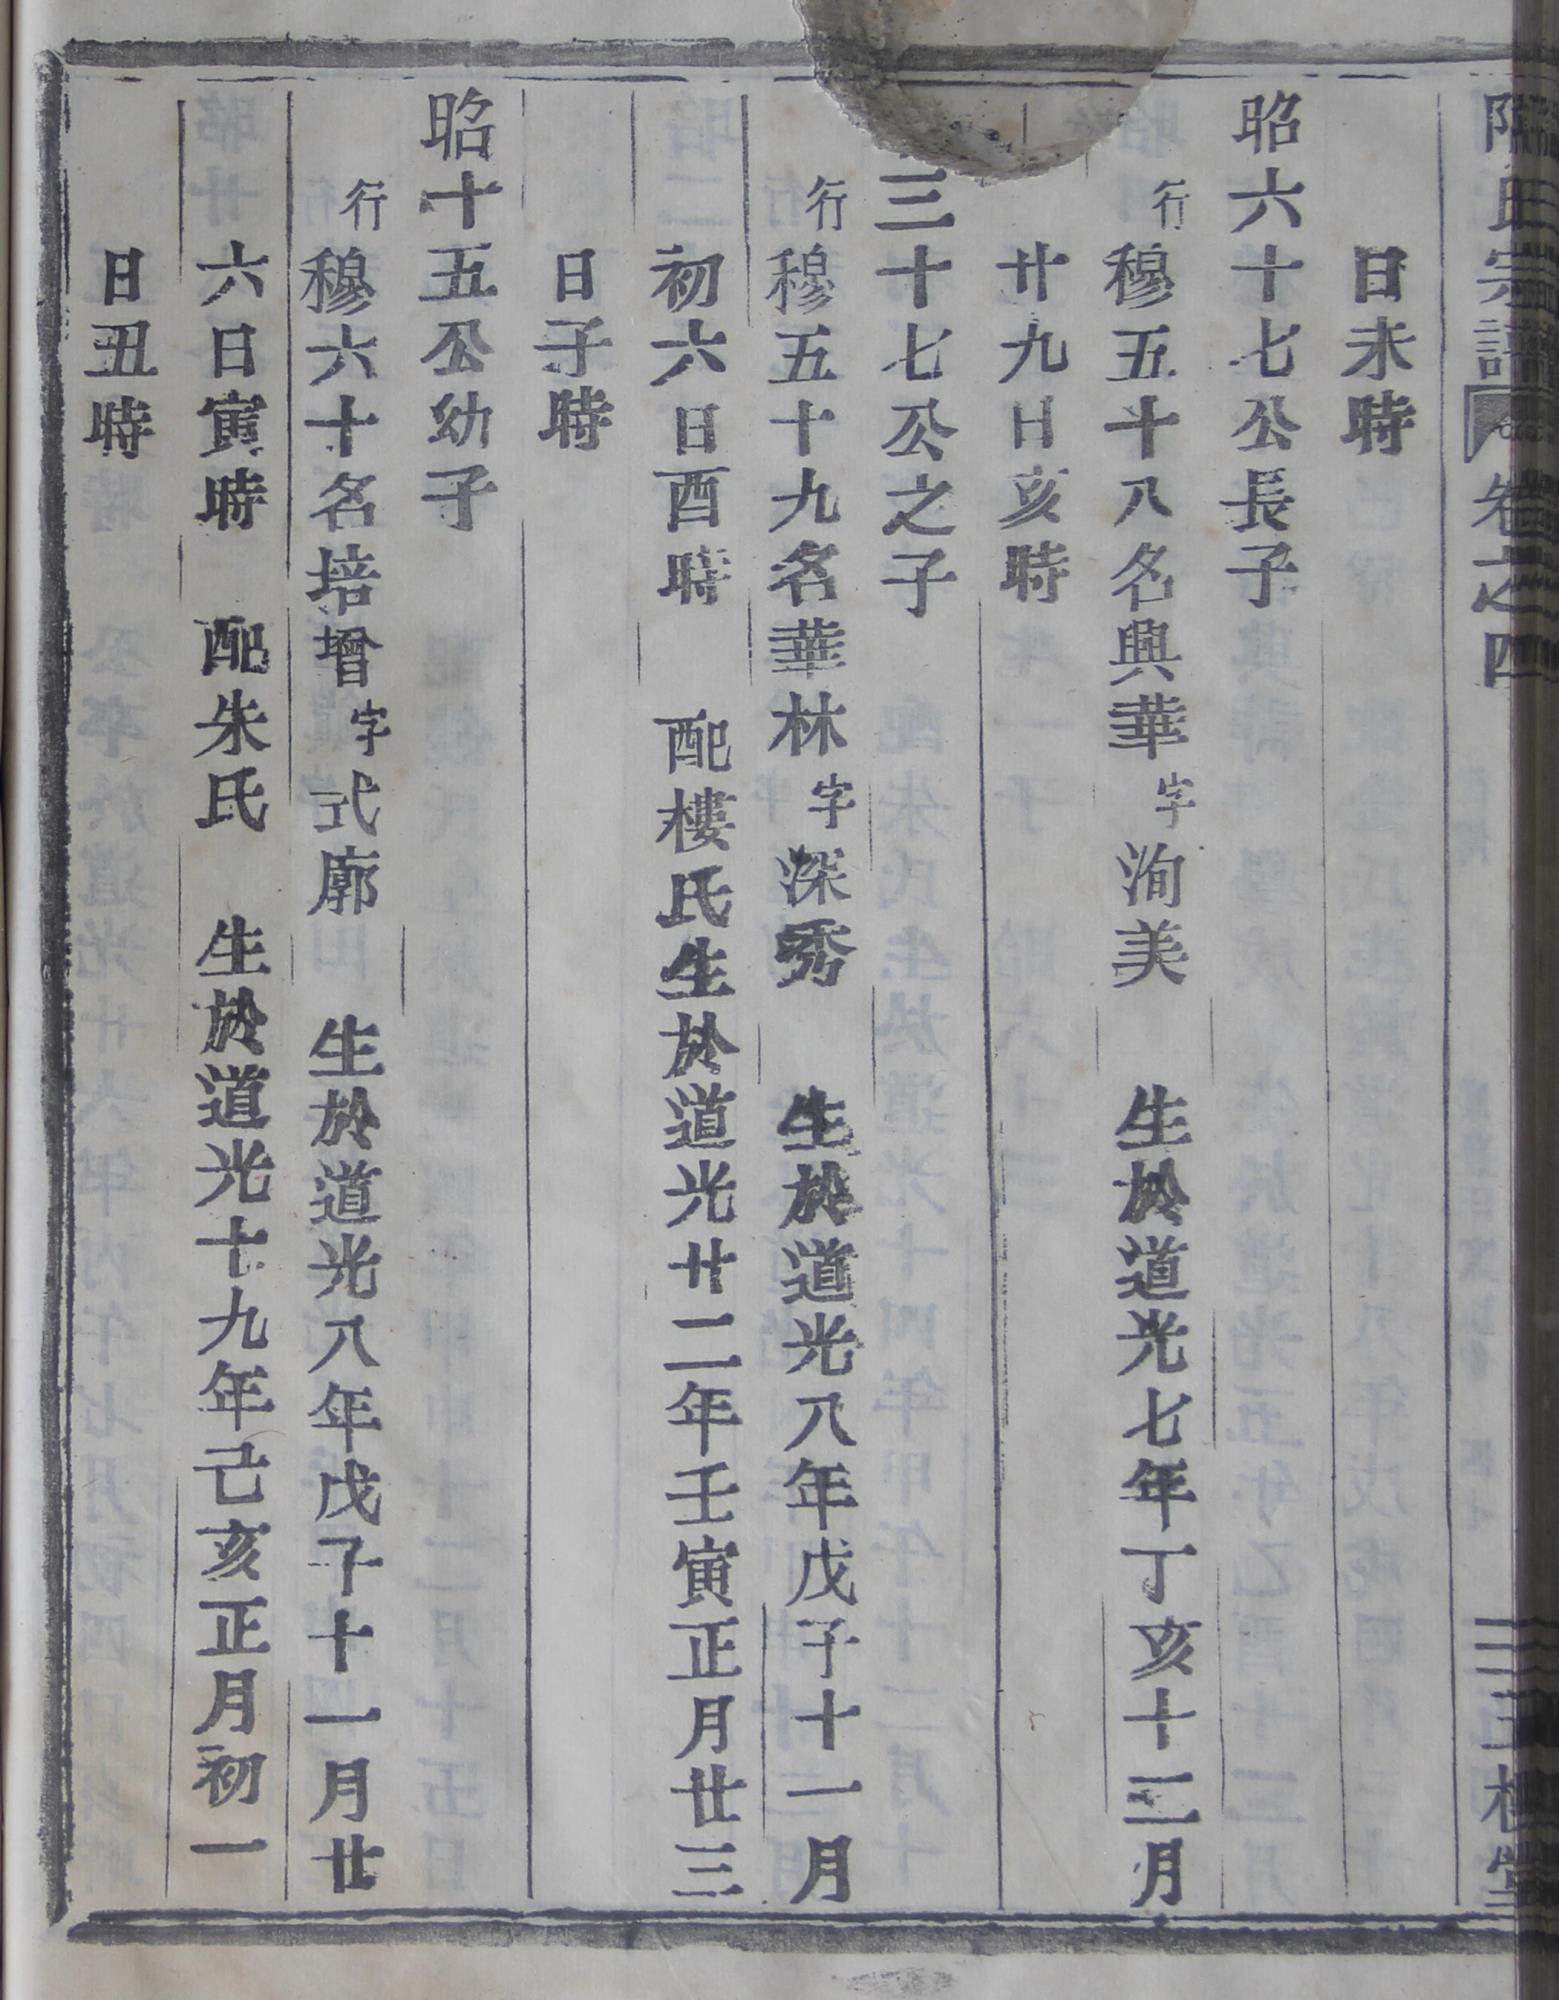 氏宗譜 卷之四 三槐堂
日未時
昭六十七公長子
行穆五十八名興華字洵美 生於道光七年丁亥十二月
廿九日亥時
三十七公之子
行穆五十九名華林字深秀 生於道光八年戊子十一月
初六日酉時 配樓氏生於道光廿二年壬寅正月廿三
日子時
昭十五公幼子
行穆六十名培增字式廓 生於道光八年戊子十一月廿
六日寅時 配朱氏 生於道光十九年己亥正月初一
日丑時